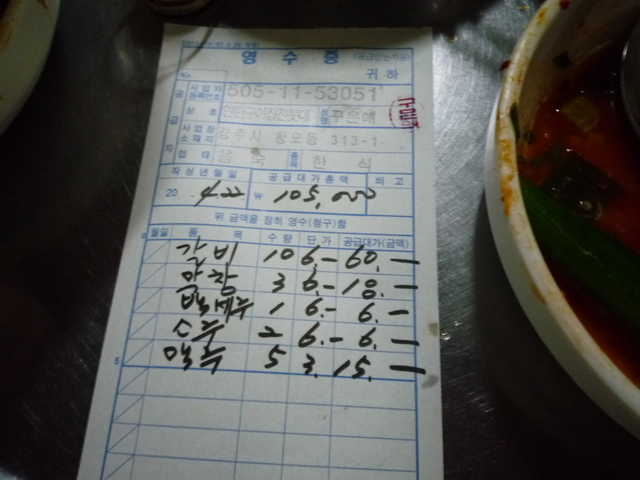 영 수 증 (공급받는자용)
귀 하
사업자 등록번호 505-11-53051
상 호 성명
사업장 소재지 경주시 황오동 313-1
업 태 음 식 종목 한 식
작성년월일 공급대가총액 비 고
20 4 22 ₩ 105,000
위 금액을 정히 영수(청구)함
월일 품 목 수량 단가 공급대가(금액)
10 6.- 60.-
3 6.- 18.-
1 6.- 6.-
소주 2 6.-
맥주 5 3. 15.-